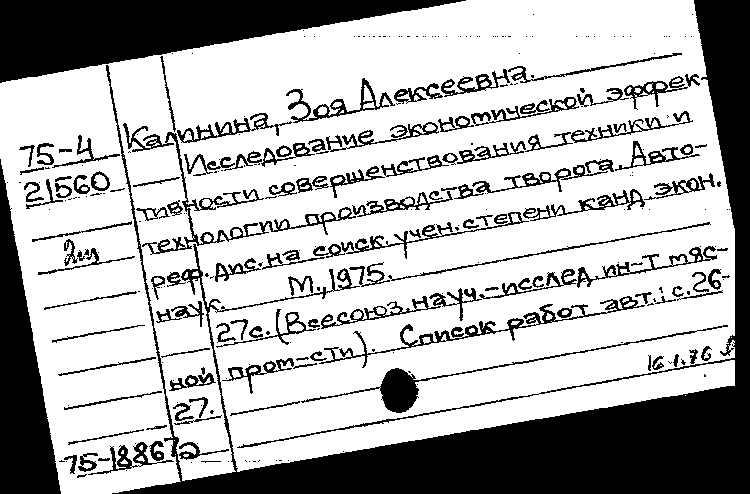 Калинина, Зоя Алексеевна.
75-4
21560
Исследование экономической эффек-
тивности совершенствования техники и
технологии производства творога. Авто-
реф. дис. на соиск. учен. степени канд. экон.
наук. М., 1975.
27с. (Всесоюз. науч.-исслед. ин-т мяс-
ной пром-сти). Список работ авт.: с.26-
27.
16.1.76
75-18867